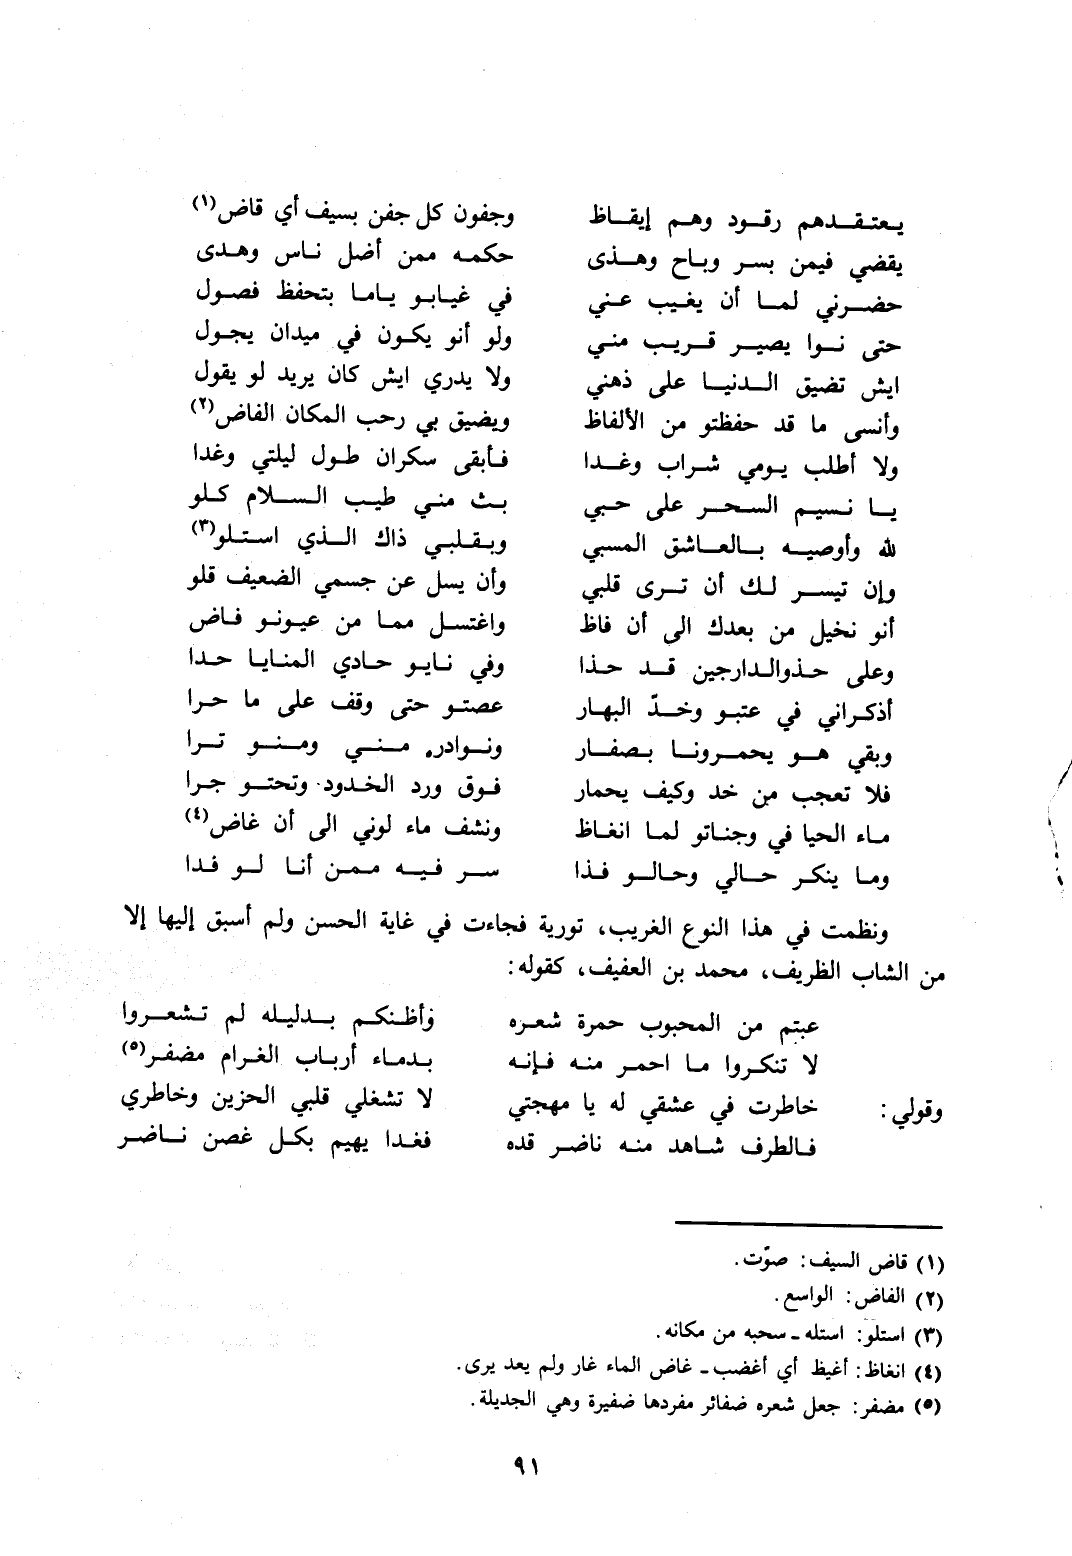 يعتقدهم رقود وهم إيقاظ وجفون كل جفن بسيف أي قاض(١)
يقضي فيمن بسر وباح وهذى حكمه ممن أضل ناس وهدى
حضرني لما أن يغيب عني في غيابو ياما بتحفظ فصول
حتى نوا يصير قريب مني ولو أنو يكون في ميدان يجول
ايش تضيق الدنيا على ذهني ولا يدري ايش كان يريد لو يقول
وأنسى ما قد حفظتو من الألفاظ ويضيق بي رحب المكان الفاض(٢)
ولا أطلب يومي شراب وغدا فأبقى سكران طول ليلتي وغدا
يا نسيم السحر على حبي بث مني طيب السلام كلو
لله وأوصيه بالعاشق المسبي وبقلبي ذاك الذي استلو(٣)
وإن تيسر لك أن ترى قلبي وأن يسل عن جسمي الضعيف قلو
أنو نخيل من بعدك الى أن فاظ واغتسل مما من عيونو فاض
وعلى حذوالدارجين قد حذا وفي نايو حادي المنايا حدا
أذكراني في عتبو وخدّ البهار عصتو حتى وقف على ما حرا
وبقي هو يحمرونا بصفار ونوادره مني ومنو ترا
فلا تعجب من خد وكيف يحمار فوق ورد الخدود وتحتو جرا
ماء الحيا في وجناتو لما انغاظ ونشف ماء لوني الى أن غاض(٤)
وما ينكر حالي وحالو فذا سر فيه ممن أنا لو فدا
ونظمت في هذا النوع الغريب، تورية فجاءت في غاية الحسن ولم أسبق إليها إلا
من الشاب الظريف، محمد بن العفيف، كقوله:
عبتم من المحبوب حمرة شعره وأظنكم بدليله لم تشعروا
لا تنكروا ما احمر منه فإنه بدماء أرباب الغرام مضفر(٥)
وقولي: خاطرت في عشقي له يا مهجتي لا تشغلي قلبي الحزين وخاطري
فالطرف شاهد منه ناضر قده فغدا يهيم بكل غصن ناضر
(١) قاض السيف: صوّت.
(٢) الفاض: الواسع.
(٣) استلو: استله ـ سحبه من مكانه.
(٤) انغاظ: أغيظ أي أغضب ـ غاض الماء غار ولم يعد يرى.
(٥) مضفر: جعل شعره ضفائر مفردها ضفيرة وهي الجديلة.
٩١